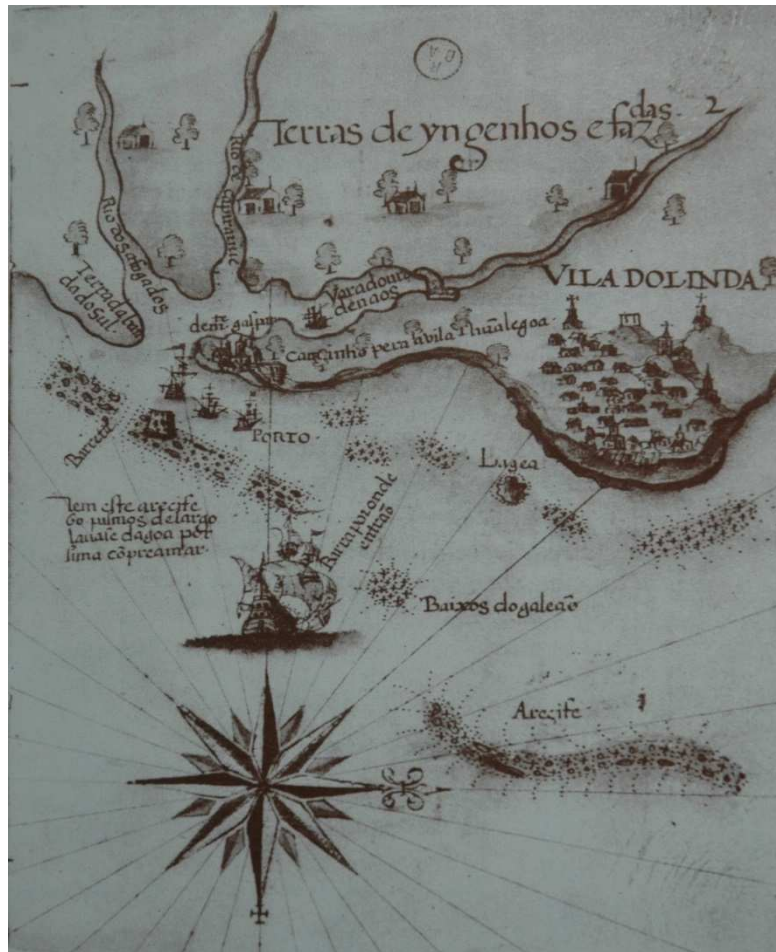 Terras de yngenhos e faz
das
2
Rio dos afogados
Rio de
Terra da
da do sul
Varadoura
de naos
VILA DOLINDA
Caminho pera a vila
legoa
PORTO
Lagea
Barreta
tem este arecife
60 palmos de largo
lavase dagoa por
sima cõ preamar
Barra por onde
entrão
Baixos do galeão
Arecife